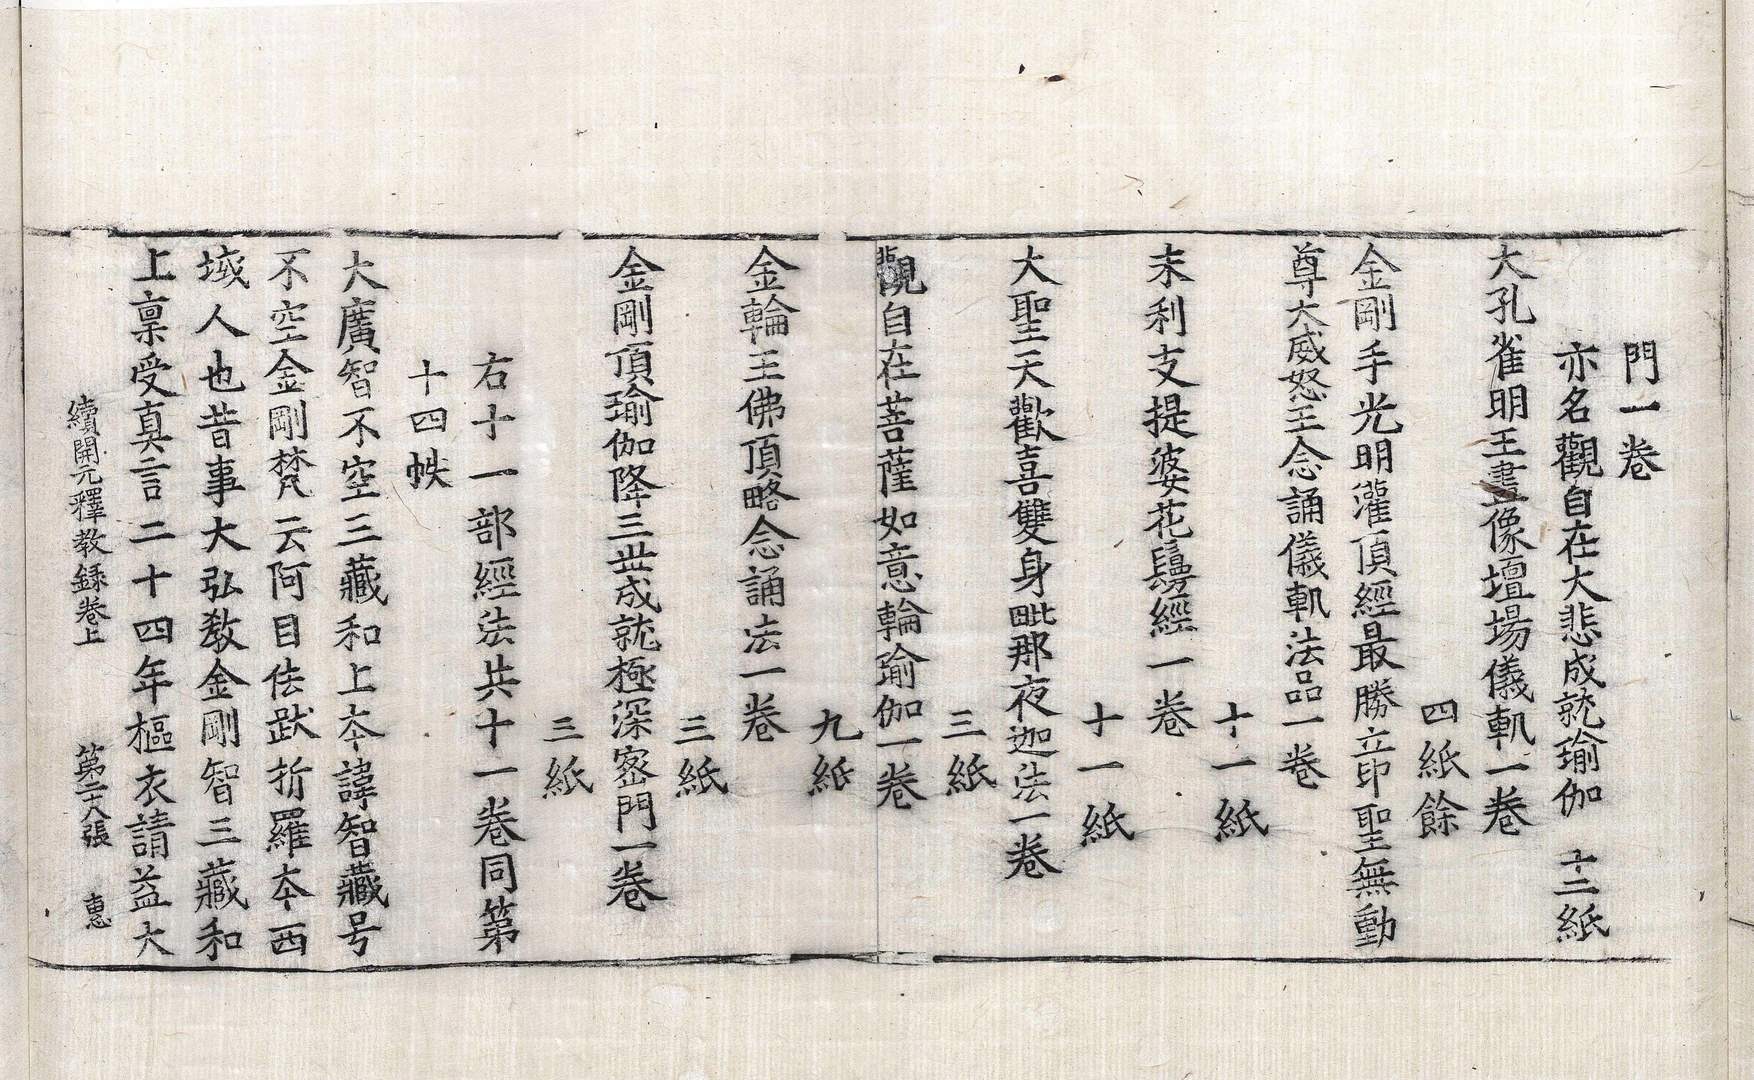 門一卷
亦名觀自在大悲成就瑜伽　十二紙
大孔雀明王畫像壇場儀軌一卷
四紙餘
金剛手光明灌頂經最勝立印聖無動
尊大威怒王念誦儀軌法品一卷
十一紙
末利支提婆花鬘經一卷
十一紙
大聖天歡喜雙身毗那夜迦法一卷
三紙
觀自在菩薩如意輪瑜伽一卷
九紙
金輪王佛頂略念誦法一卷
三紙
金剛頂瑜伽降三世成就極深密門一卷
三紙
右十一部經法共十一卷同第
十四帙
大廣智不空三藏和上夲諱智藏号
不空金剛梵云阿目佉跋折羅夲西
域人也昔事大弘教金剛智三藏和
上稟受真言二十四年樞衣請益大
續開元釋教録卷上　第二十八張　惠